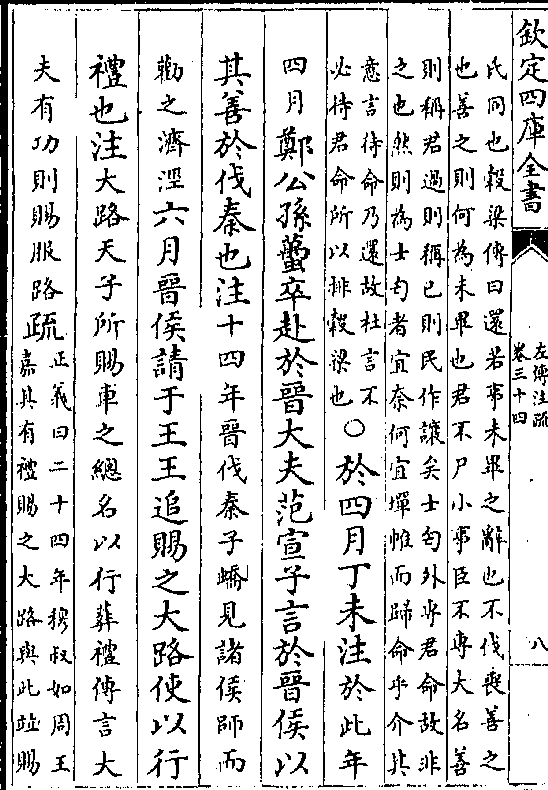 欽定四庫全書
左傳注疏
卷三十四
八
氏同也穀梁傳曰還者事未畢之辭也不伐喪善之
也善之則何為未畢也君不尸小事臣不專大名善
則稱君過則稱已則民作讓矣士匄外專君命故非
之也然則為士匄者宜奈何宜墠帷而歸命乎介其
意言待命乃還故杜言不
必待君命所以排穀梁也〇於四月丁未注於此年
四月鄭公孫蠆卒赴於晉大夫范宣子言於晉侯以
其善於伐秦也注十四年晉伐秦子蟜見諸侯師而
勸之濟涇六月晉侯請于王王追賜之大路使以行
禮也注大路天子所賜車之總名以行葬禮傳言大
夫有功則賜服路疏正義曰二十四年穆叔如周王
嘉其有禮賜之大路與此並賜